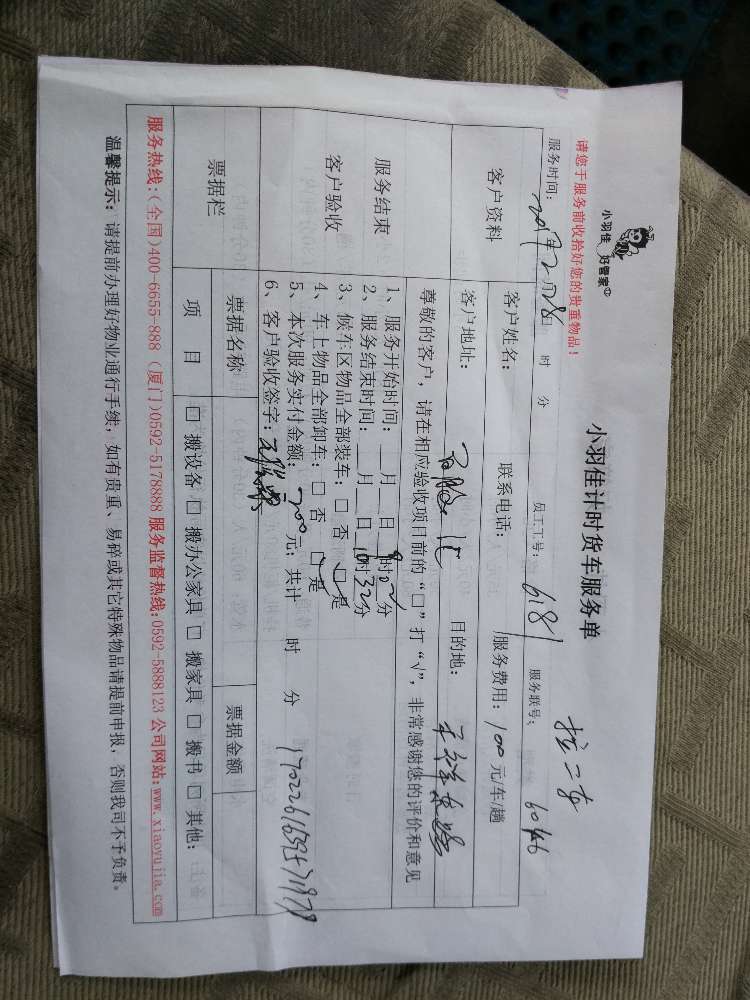 小羽佳 好管家
小羽佳计时货车服务单
请您于服务前收拾好您的贵重物品!
服务时间: 日 时 分 员工工号: 6181 服务联号: 6046
客户资料
客户姓名: 联系电话: 服务费用: 100 元/车/趟
客户地址: 目的地:
尊敬的客户,请在相应验收项目前的“□”打“√”,非常感谢您的评价和意见
服务结束
客户验收
1、服务开始时间: 月 日 时 分
2、服务结束时间: 月 日 10时32分
3、候车区物品全部装车:□ 否 □ 是
4、车上物品全部卸车:□ 否 □ 是
5、本次服务实付金额: 200 元;共计 时 分
6、客户验收签字:
票据栏
票据名称 票据金额
项 目 □ 搬设备 □ 搬办公家具 □ 搬家具 □ 搬书 □ 其他:
服务热线:(全国)400-6655-888 (厦门)0592-5178888 服务监督热线:0592-5888123 公司网站:www.xiaoyujia.com
温馨提示:请提前办理好物业通行手续,如有贵重、易碎或其它特殊物品请提前申报,否则我司不予负责。